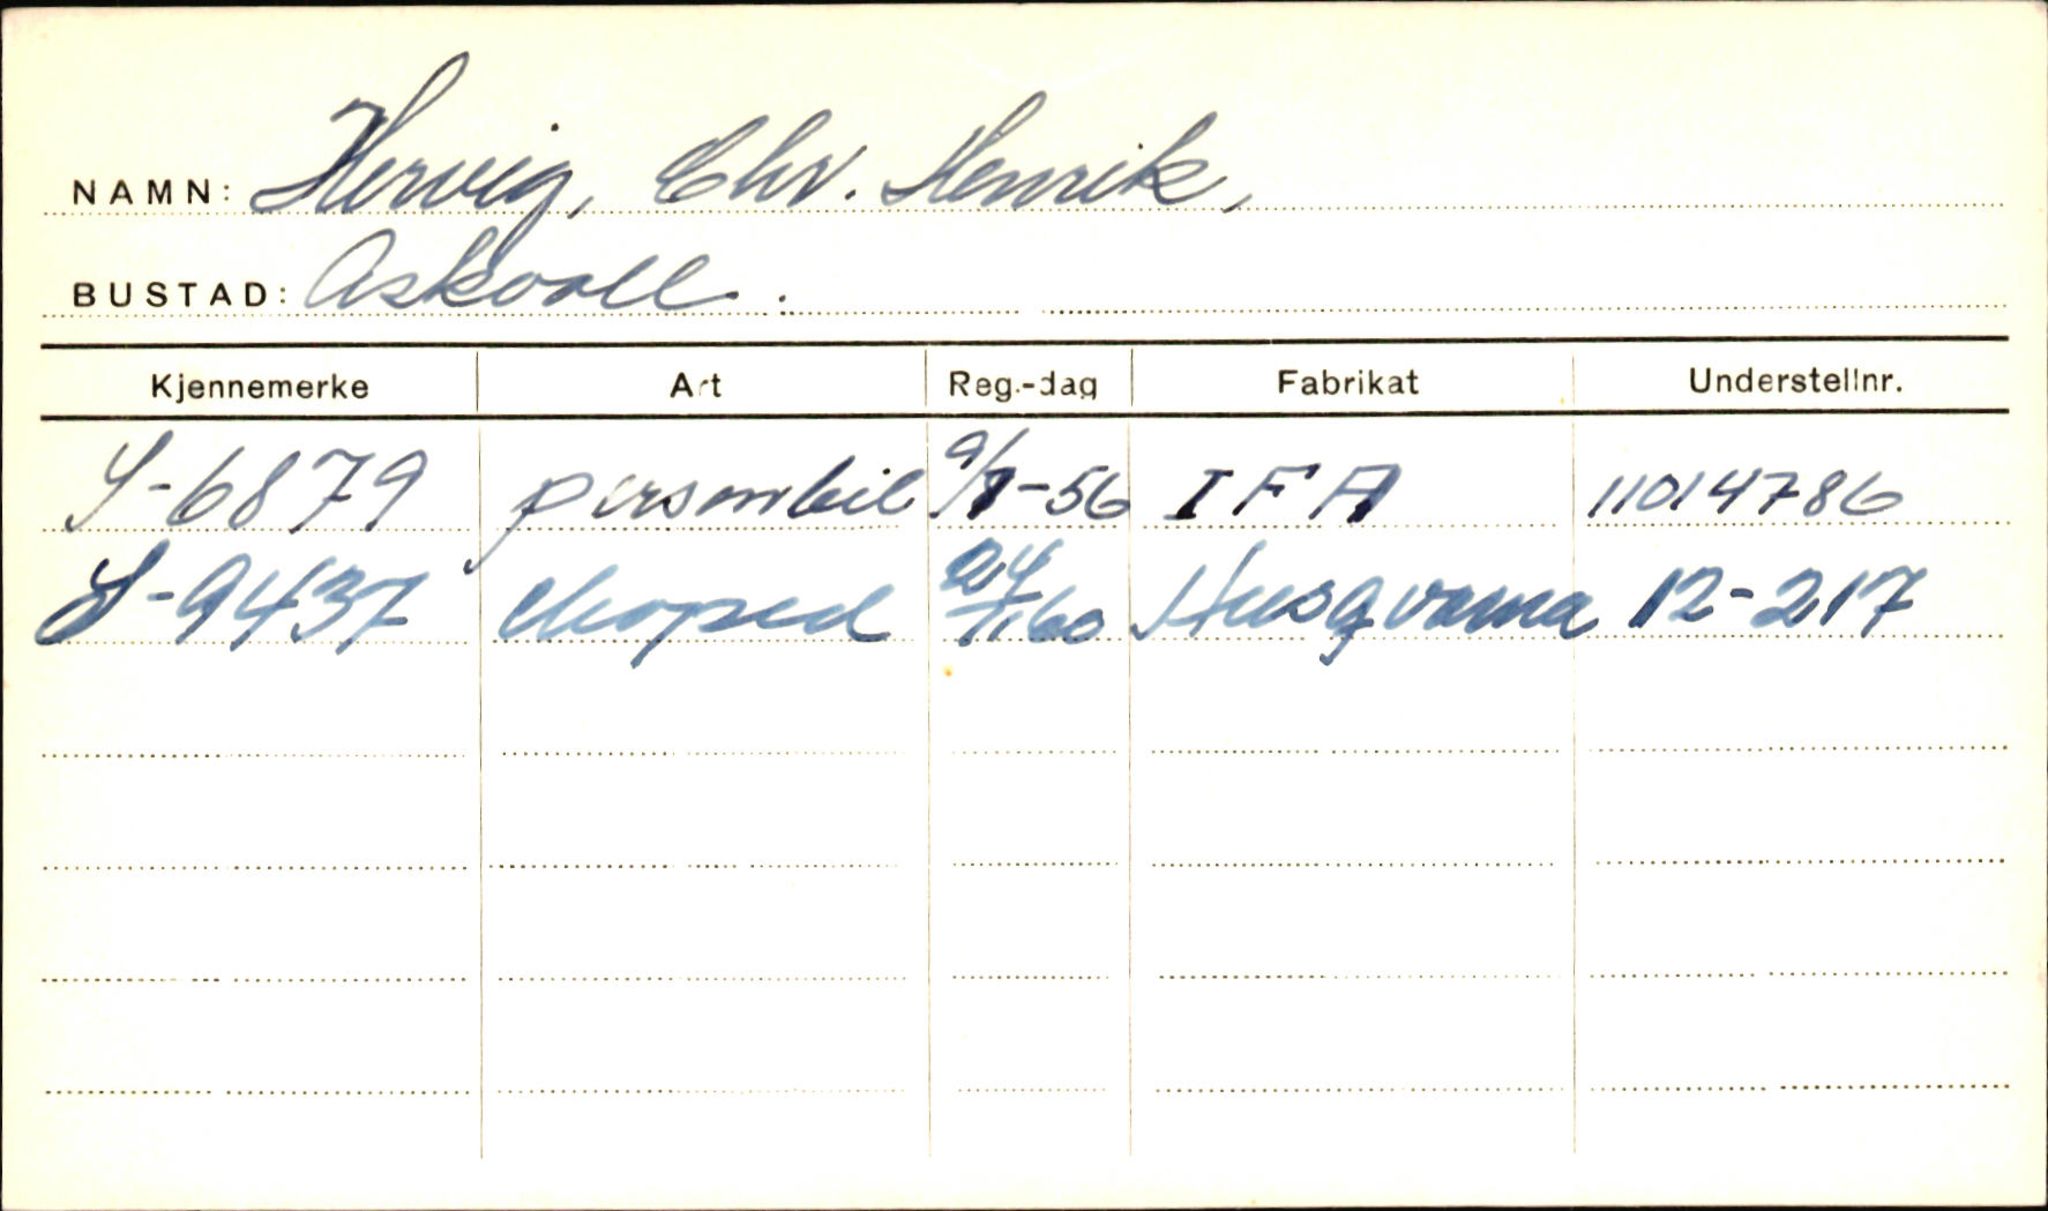 NAMN: Hervig, Chr. Henrik,
BUSTAD: Askvoll.
Kjennemerke Art Reg.-dag Fabrikat Understellnr.
S-6879 personbil 9/7-56 IFA 11014786
S-9437 Moped 24/1160 Husqvarna 12-217